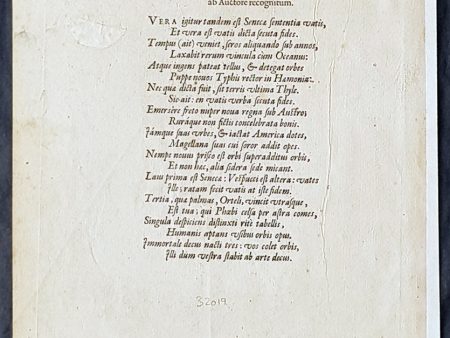 ab Auctore recognitum.
VERA igitur tandem est Senecæ sententia vatis,
Et vera est vatis dicta secuta fides.
Tempus (ait) veniet, seros aliquando sub annos,
Laxabit rerum vincula cùm Oceanus:
Atque ingens pateat tellus, & detegat orbes
Puppe nouos Typhis rector in Hæmonia.
Nec qua dicta fuit, sit terris vltima Thyle.
Sic ait: en vatis verba secuta fides.
Emersêre freto nuper noua regna sub Austro,
Ruráque non fictis concelebrata bonis.
Iámque suas vrbes, & iactat America dotes,
Magellana suas cui soror addit opes.
Nempe nouus prisco est orbi superadditus orbis,
Et non hac, alia sidera sede micant.
Laus prima est Senecæ: Vespucci est altera: vates
Ille; ratam fecit vatis at iste fidem.
Tertia, quæ palmas, Orteli, vincit vtrasque,
Est tua; qui Phœbi celsa per astra comes,
Singula despiciens distinxti ritè tabellis,
Humanis aptans vsibus orbis opus.
Immortale decus nacti tres: vos colet orbis,
Illi dum vestra stabit ab arte decus.
32019